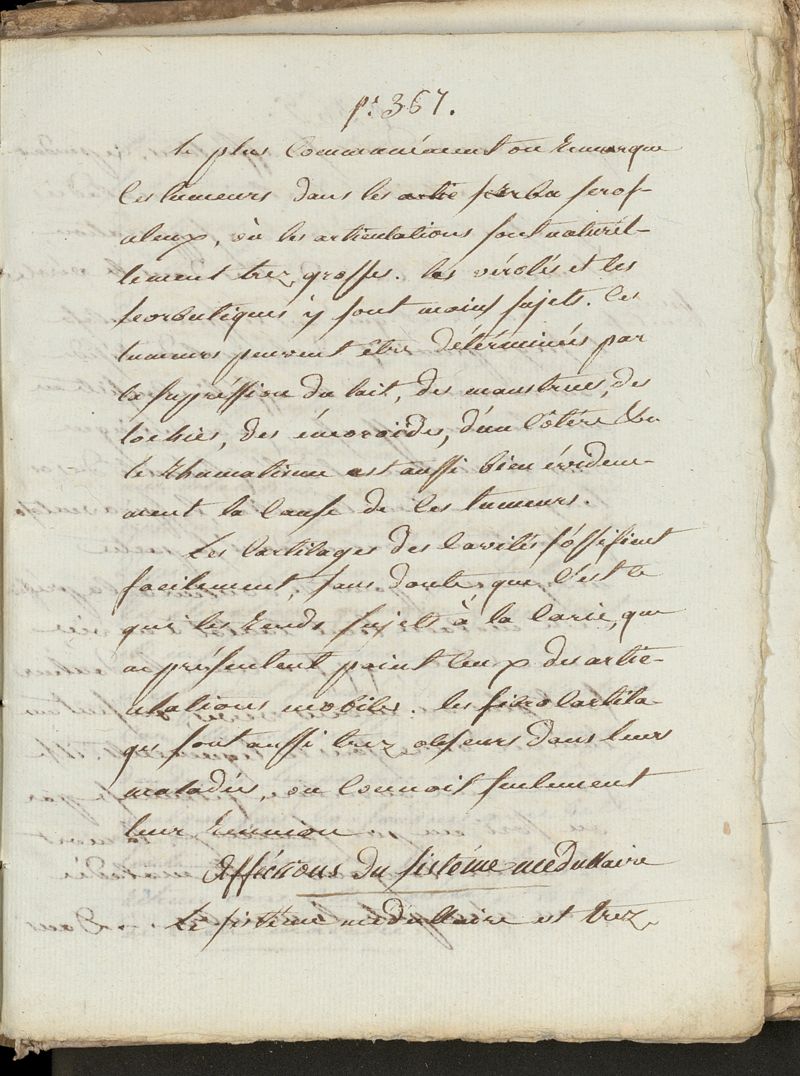 p. 367.
le plus Communément on Remarque
Ces tumeurs dans les scrof-
uleux, où les articulations sont naturel-
lement trez grosses. les vérolés et les
scorbutiques y sont moins sujets. Ces
tumeurs peuvent être détérminées par
la supréssion du lait, des menstrues, des
lochies, des émoroides, d'un
le Rhumatisme est aussi bien évidem-
ment la Cause de Ces tumeurs.
Les Cartilages des Cavités s'óssifient
facilement, sans doute que C'est ce
qui les Rends sujets à la Carie, que
ne présentent point Ceux des artic-
ulations mobiles. les fibro Cartila-
ges sont aussi trez obscurs dans leurs
maladies, on Connoit seulement
leur Réunion
Afféctions du sistéme médullaire
Le sistéme médullaire est trez